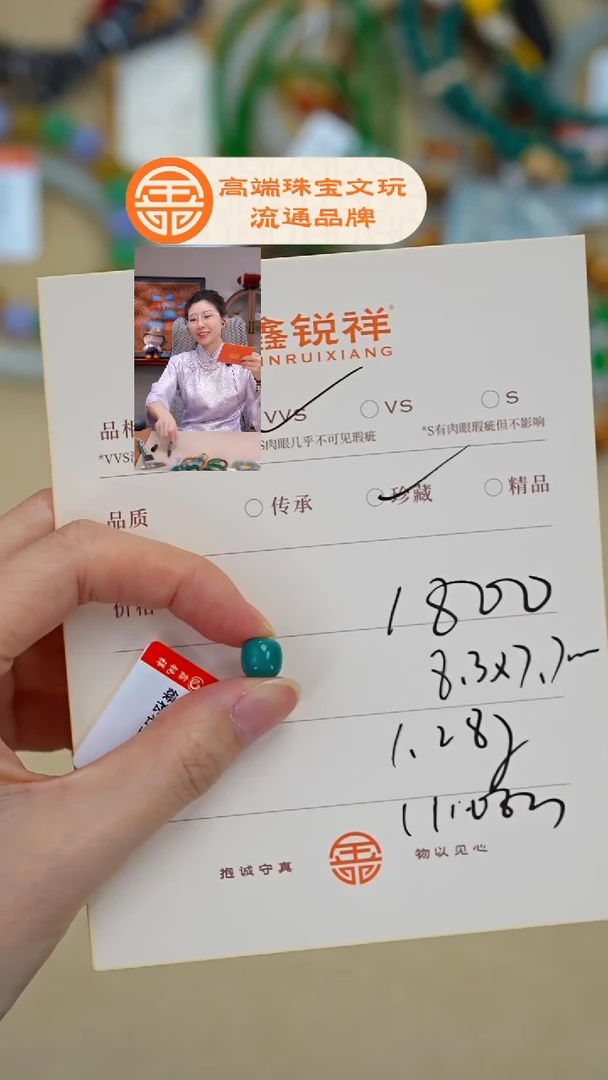 高端珠宝文玩
流通品牌
鑫锐祥
INRUIXIANG
品相 VVS VS S
*VVS S肉眼几乎不可见瑕疵 *S有肉眼瑕疵但不影响
品质 传承 珍藏 精品
价格 1800
8.3x7.7m
1.28g
抱诚守真 物以见心